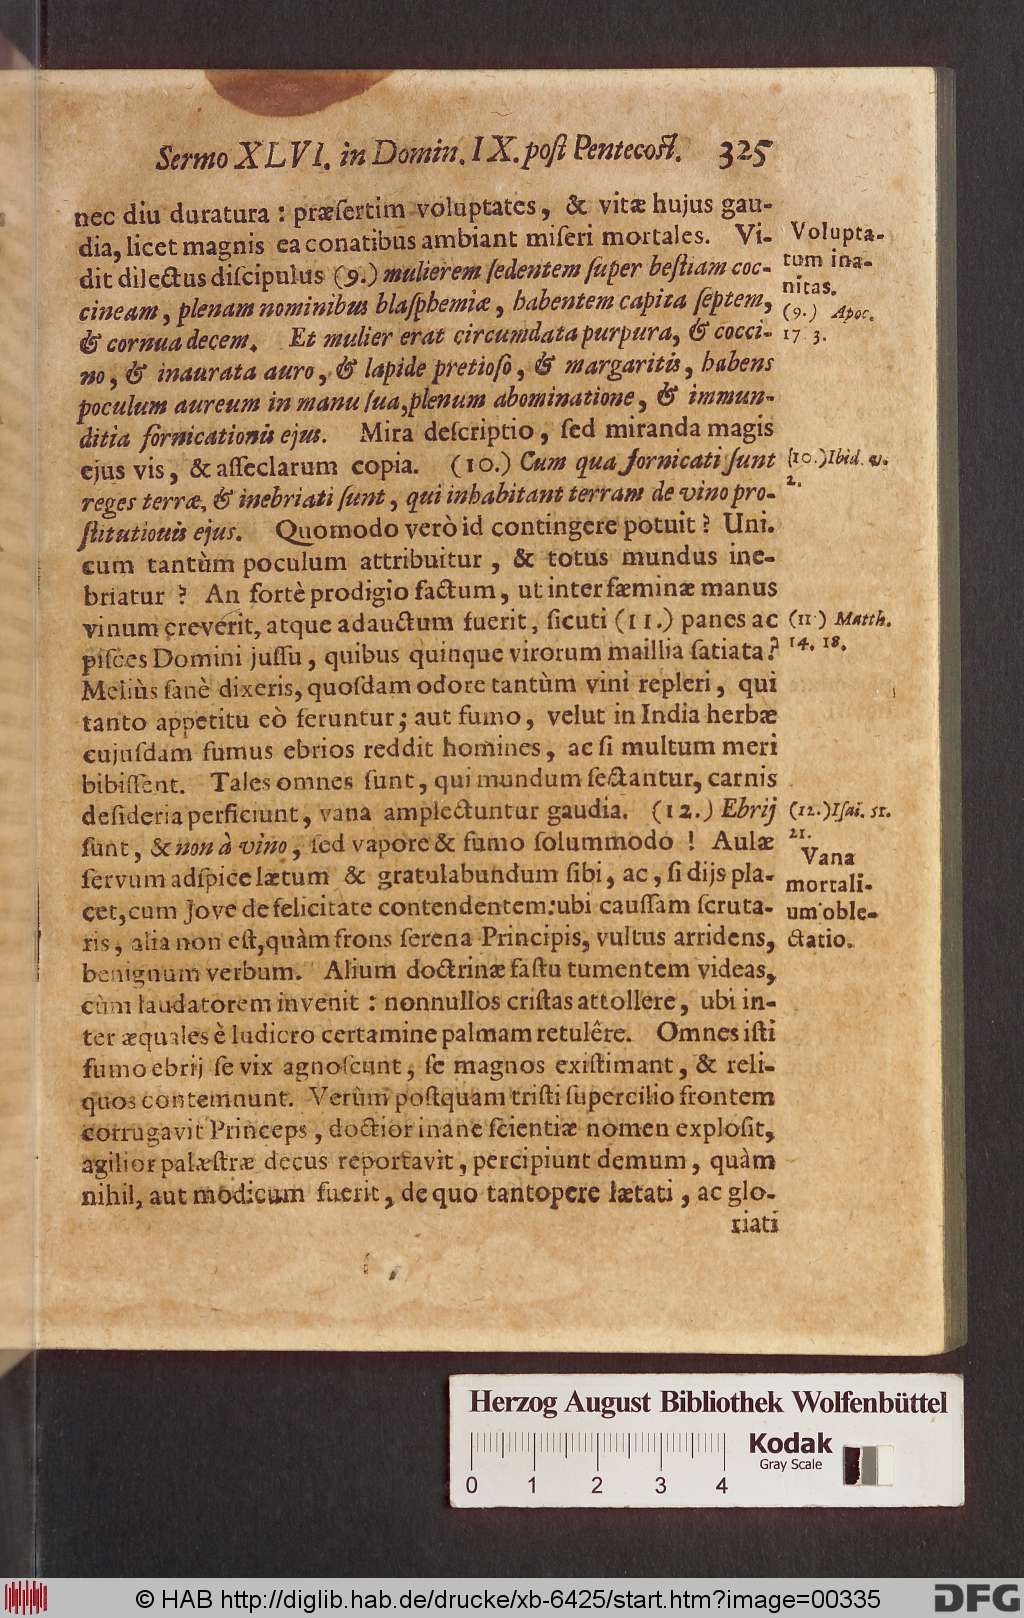 Sermo XLVI. in Domin. IX. poſt Pentecoſt. 325
nec diu duratura : præſertim voluptates, & vitæ hujus gau-
dia, licet magnis ea conatibus ambiant miſeri mortales. Vi-
dit dilectus diſcipulus (9.) mulierem ſedentem ſuper beſtiam coc-
cineam, plenam nominibus blaſphemiæ, habentem capita ſeptem,
& cornua decem. Et mulier erat circumdata purpura, & cocci-
no, & inaurata auro, & lapide pretioſo, & margaritis, habens
poculum aureum in manu ſua, plenum abominatione, & immun-
ditia fornicationis ejus. Mira deſcriptio, ſed miranda magis
ejus vis, & aſſeclarum copia. (10.) Cum qua fornicati ſunt
reges terræ, & inebriati ſunt, qui inhabitant terram de vino pro-
ſtitutionis ejus. Quomodo verò id contingere potuit? Uni.
cum tantùm poculum attribuitur, & totus mundus ine-
briatur ? An fortè prodigio factum, ut inter fæminæ manus
vinum creverit, atque adauctum fuerit, ſicuti (11.) panes ac
piſces Domini juſſu, quibus quinque virorum maillia ſatiata?
Meliùs ſanè dixeris, quoſdam odore tantùm vini repleri, qui
tanto appetitu eò feruntur; aut fumo, velut in India herbæ
cujuſdam fumus ebrios reddit homines, ac ſi multum meri
bibiſſent. Tales omnes ſunt, qui mundum ſectantur, carnis
deſideria perficiunt, vana amplectuntur gaudia. (12.) Ebrij
ſunt, & non à vino, ſed vapore & fumo ſolummodo ! Aulæ
ſervum adſpice lætum & gratulabundum ſibi, ac, ſi dijs pla-
cet, cum Jove de felicitate contendentem: ubi cauſſam ſcruta-
ris, alia non eſt, quàm frons ſerena Principis, vultus arridens,
benignum verbum. Alium doctrinæ faſtu tumentem videas,
cùm laudatorem invenit : nonnullos criſtas attollere, ubi in-
ter æquales è ludicro certamine palmam retulêre. Omnes iſti
fumo ebrij ſe vix agnoſcunt, ſe magnos exiſtimant, & reli-
quos contemnunt. Verùm poſtquam triſti ſupercilio frontem
corrugavit Princeps, doctior inane ſcientiæ nomen exploſit,
agilior palæſtræ decus reportavit, percipiunt demum, quàm
nihil, aut modicum fuerit, de quo tantopere lætati, ac glo-
riati
Volupta-
tum ina-
nitas.
(9.) Apoc.
17. 3.
(10.) Ibid. v.
2.
(11) Matth.
14. 18.
(12.) Iſai. 51.
21.
Vana
mortali-
um oble-
ctatio.
Herzog August Bibliothek Wolfenbüttel
0 1 2 3 4
Kodak
Gray Scale
© HAB http://diglib.hab.de/drucke/xb-6425/start.htm?image=00335
DFG